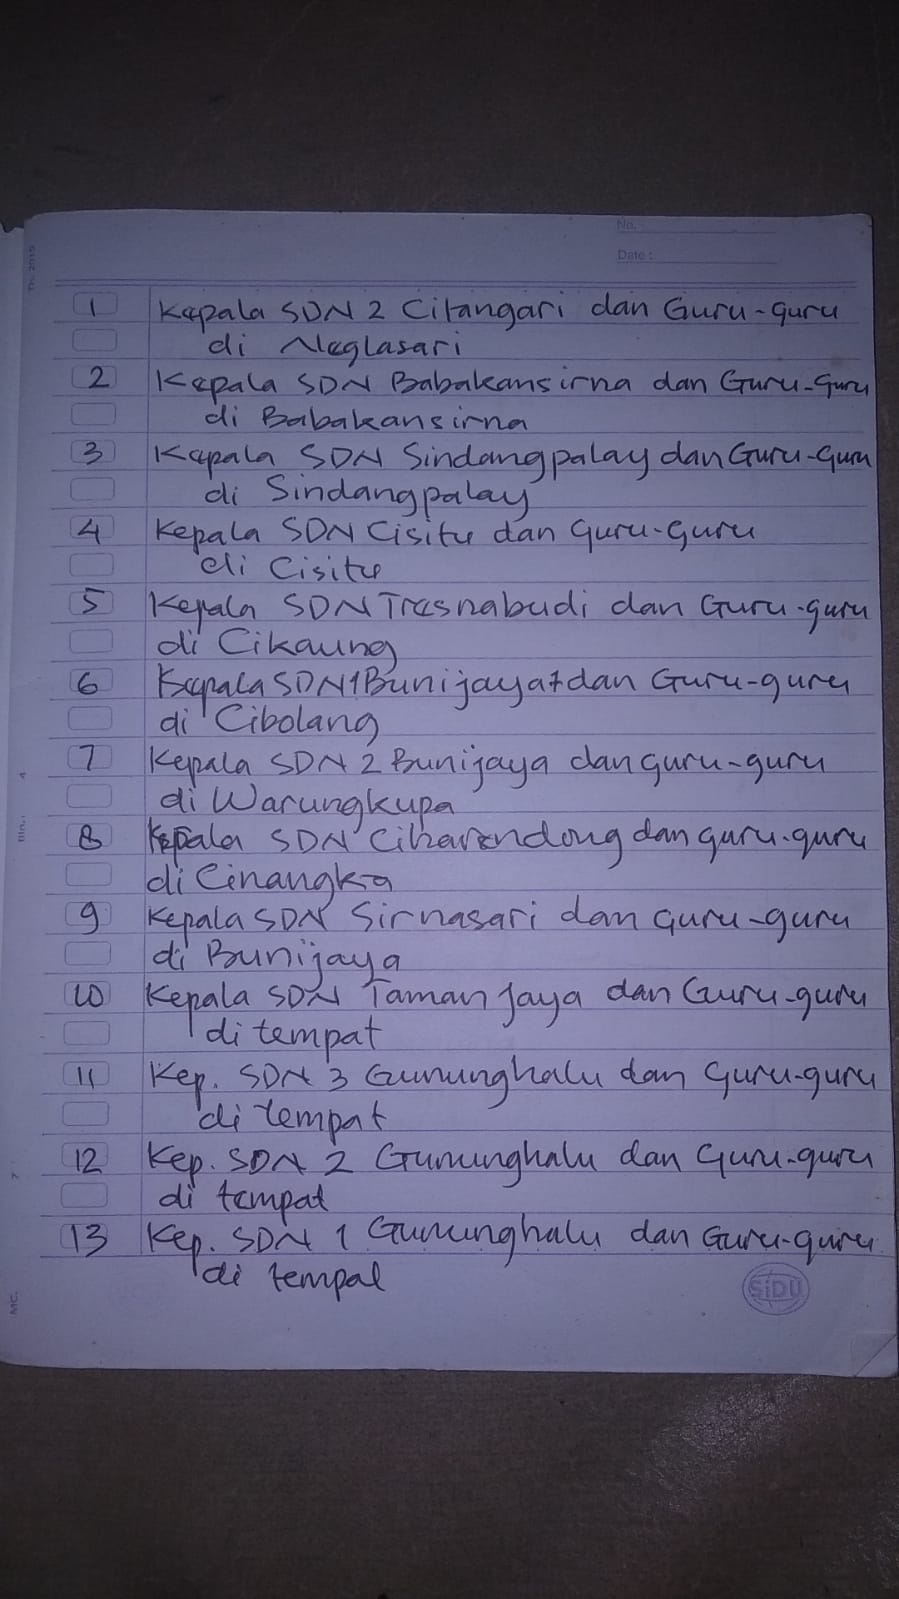 No.
Date :
1 Kepala SDN 2 Citangari dan Guru-guru
di Neglasari
2 Kepala SDN Babakansirna dan Guru-Guru
di Babakansirna
3 Kepala SDN Sindangpalay dan Guru-Guru
di Sindangpalay
4 Kepala SDN Cisitu dan guru-guru
di Cisitu
5 Kepala SDN Tresnabudi dan Guru-guru
di Cikaung
6 Kepala SDN 1 Bunijaya dan Guru-guru
di Cibolang
7 Kepala SDN 2 Bunijaya dan guru-guru
di Warungkupa
8 Kepala SDN Cihavendong dan guru-guru
di Cinangka
9 Kepala SDN Sirnasari dan guru-guru
di Bunijaya
10 Kepala SDN Taman Jaya dan Guru-guru
di tempat
11 Kep. SDN 3 Gununghalu dan guru-guru
di tempat
12 Kep. SDN 2 Gununghalu dan guru-guru
di tempat
13 Kep. SDN 1 Gununghalu dan Guru-guru
di tempat
SiDU